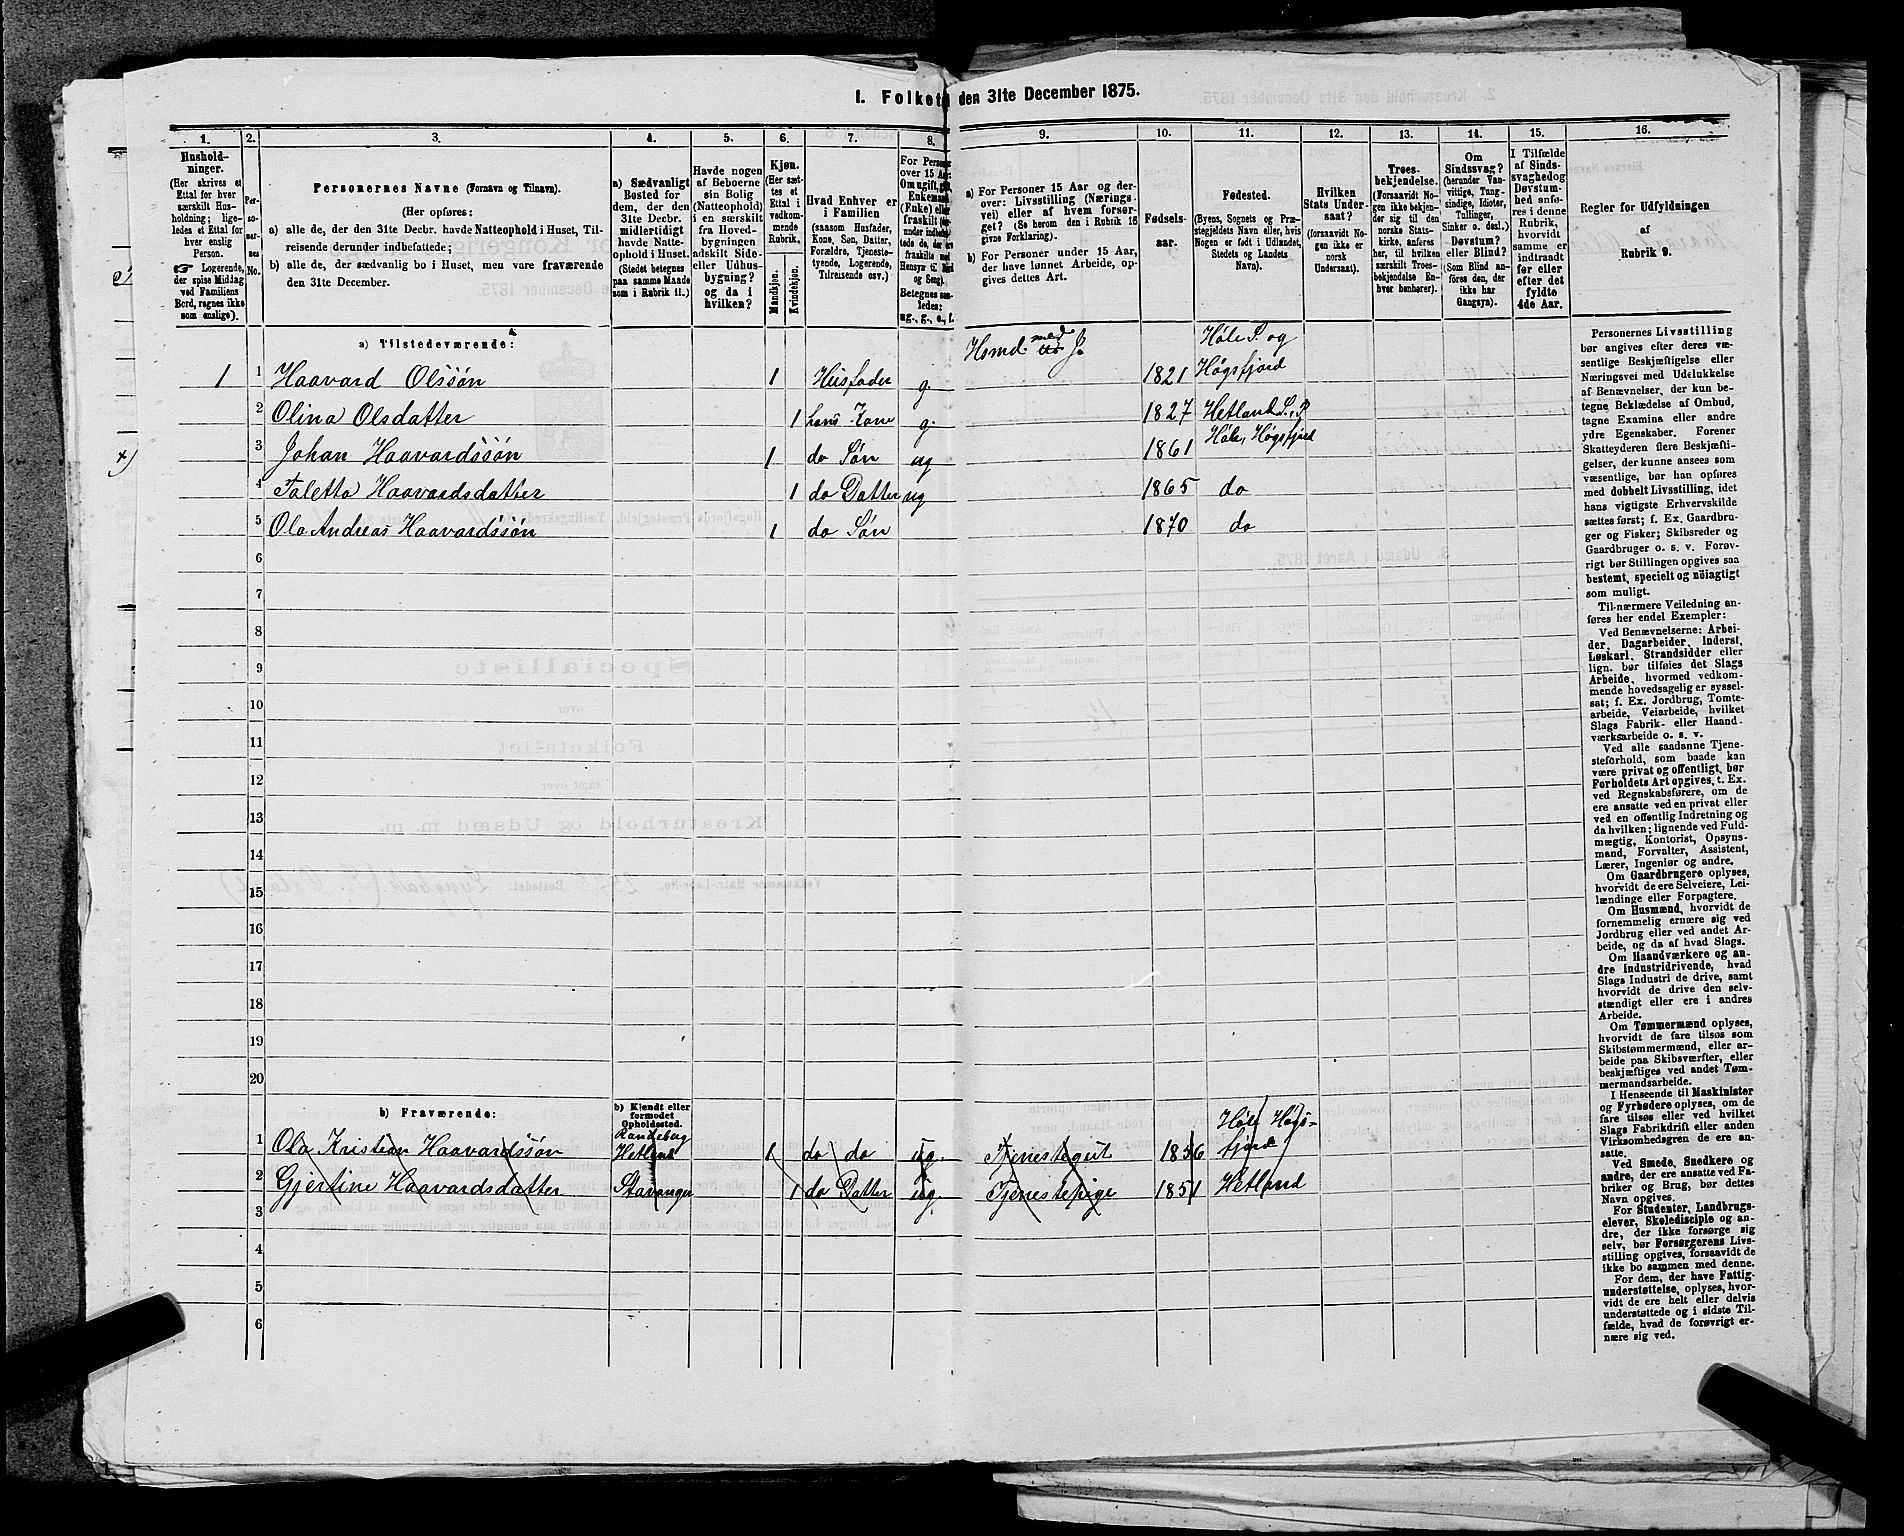 I. Folketa den 31te December 1875.
1.
Hushold-
ninger.
(Her skrives et
Ettal for hver
særskilt Hus-
holdning; lige-
ledes et Ettal for
hver enslig
Person.
☞ Logerende,
der spise Middag
ved Familiens
Bord, regnes ikke
som enslige).
2.
Per-
so-
ner-
nes
No.
3.
Personernes Navne (Fornavn og Tilnavn).
(Her opføres:
a) alle de, der den 31te Decbr. havde Natteophold i Huset, Til-
reisende derunder indbefattede;
b) alle de, der sædvanlig bo i Huset, men vare fraværende
den 31te December.
4.
a) Sædvanligt
Bosted for
dem, der den
31te Decbr.
midlertidigt
havde Natte-
ophold i Huset.
(Stedet betegnes
paa samme Maade
som i Rubrik 11.)
5.
Havde nogen
af Beboerne
sin Bolig
(Natteophold)
i en særskilt
fra Hoved-
bygningen
adskilt Side-
eller Udhus-
bygning?
og da i
hvilken?
6.
Kjøn.
(Her sæt-
tes et
Ettal i
vedkom-
mende
Rubrik.
Mandkjøn.
Kvindekjøn.
7.
Hvad Enhver er
i Familien
(saasom Husfader,
Kone, Søn, Datter,
Forældre, Tjeneste-
tyende, Logerende,
Tilreisende osv.)
8.
For Persone
over 15 Aar
Om ugift, gift,
Enkemand
(Enke) eller
fraskilt (der-
under indbefat-
tede de, der ere
fraskilte med
Hensyn til Bord
og Seng).
Betegnes saa-
ledes:
ug., g., e., f.
9.
a) For Personer 15 Aar og der-
over: Livsstilling (Nærings-
vei) eller af hvem forsør-
get. (Se herom den i Rubrik 16
givne Forklaring).
b) For Personer under 15 Aar,
der have lønnet Arbeide, op-
gives dettes Art.
10.
Fødsels-
aar.
11.
Fødested.
(Byens, Sognets og Præ-
stegjeldets Navn eller, hvis
Nogen er født i Udlandet,
Stedets og Landets
Navn).
12.
Hvilken
Stats Under-
saat?
(forsaavidt No-
gen ikke er
norsk
Undersaat).
13.
Troes-
bekjendelse.
(Forsaavidt No-
gen ikke bekjen-
der sig til den
norske Stats-
kirke, anføres
her, til hvilken
særskilt Troes-
bekjendelse En-
hver henhører).
14.
Om
Sindssvag?
(herunder Van-
vittige, Tung-
sindige, Idioter,
Tullinger,
Sinker o. desl.)
Døvstum?
eller Blind?
(Som Blind an-
føres den, der
ikke har
Gangsyn).
15.
I Tilfælde
af Sinds-
svaghed og
Døvstum-
hed anfø-
res i denne
Rubrik,
hvorvidt
samme er
indtraadt
før eller
efter det
fyldte
4de Aar.
16.
Regler for Udfyldningen
af
Rubrik 9.
a) Tilstedeværende:
Hsmd. med J.
Høle S. og
1 1 Haavard Olssøn 1 Husfader g. 1821 Høgsfjord
2 Olina Olsdatter 1 hans Kone g. 1827 Hetland S., P.
3 Johan Haavardssøn 1 do Søn ug 1861 Høle, Høgsfjord
4 Taletta Haavardsdatter 1 do Datter ug 1865 do
5 Ola Andreas Haavardssøn 1 do Søn 1870 do
6
7
8
9
10
11
12
13
14
15
16
17
18
19
20
b) Fraværende:
b) Kjendt eller
formodet
Opholdssted.
Randeberg
Høle Høgs-
1 Ola Kristian Haavardssøn Hetland 1 do do ug. Tjenestegut 1856 fjord
2 Gjertine Haavardsdatter Stavanger 1 do Datter ug. Tjenestepige 1851 Hetland
3
4
5
6
Personernes Livsstilling
bør angives efter deres væ-
sentlige Beskjæftigelse eller
Næringsvei med Udelukkelse
af Benævnelser, der kun be-
tegne Beklædelse af Ombud,
tagne Examina eller andre
ydre Egenskaber. Forener
Skatteyderen flere Beskjæfti-
gelser, der kunne ansees som
væsentlige, bør han opføres
med dobbelt Livsstilling, idet
hans vigtigste Erhvervskilde
sættes først; f. Ex. Gaardbru-
ger og Fisker; Skibsreder og
Gaardbruger o. s. v. Forøv-
rigt bør Stillingen opgives saa
bestemt, specielt og nöiagtigt
som muligt.
Til nærmere Veiledning an-
føres her endel Exempler:
Ved Benævnelserne: Arbei-
der, Dagarbeider, Inderst,
Løskarl, Strandsidder eller
lign. bør tilføies det Slags
Arbeide, hvormed vedkom-
mende hovedsagelig er syssel-
sat; f. Ex. Jordbrug, Tomte-
arbeide, Veiarbeide, hvilket
Slags Fabrik- eller Haand-
værksarbeide o. s. v.
Ved alle saadanne Tjene-
steforhold, som baade kan
være privat og offentligt, bør
Forholdets Art opgives, t. Ex.
ved Regnskabsførere, om de
ere ansatte ved en privat eller
ved en offentlig Indretning og
da hvilken; lignende ved Fuld-
mægtig, Kontorist, Opsyns-
mand, Forvalter, Assistent,
Lærer, Ingeniør og andre.
Om Gaardbrugere oplyses,
hvorvidt de ere Selveiere, Lei-
lændinge eller Forpagtere.
Om Husmænd, hvorvidt de
fornemmelig ernære sig ved
Jordbrug eller ved andet Ar-
beide, og da af hvad Slags.
Om Haandværkere og an-
dre Industridrivende, hvad
Slags Industri de drive, samt
hvorvidt de drive den selv-
stændigt eller ere i andres
Arbeide.
Om Tømmermænd oplyses,
hvorvidt de fare tilsøs som
Skibstømmermænd, eller ar-
beide paa Skibsværfter, eller
beskjæftiges ved andet Tøm-
mermandsarbeide.
I Henseende til Maskinister
og Fyrbødere oplyses, om de
fare tilsøs eller ved hvilket
Slags Fabrikdrift eller anden
Virksomhedsgren de ere an-
satte.
Ved Smede, Snedkere og
andre, der ere ansatte ved Fa-
briker og Brug, bør dettes
Navn opgives.
For Studenter, Landbrugs-
elever, Skoledisciple og an-
dre, der ikke forsørge sig
selv, bør Forsørgerens Livs-
stilling opgives, forsaavidt de
ikke bo sammen med denne.
For dem, der have Fattig-
understøttelse, oplyses, hvor-
vidt de ere helt eller delvis
understøttede og i sidste Til-
fælde, hvad de forøvrigt er-
nære sig ved.